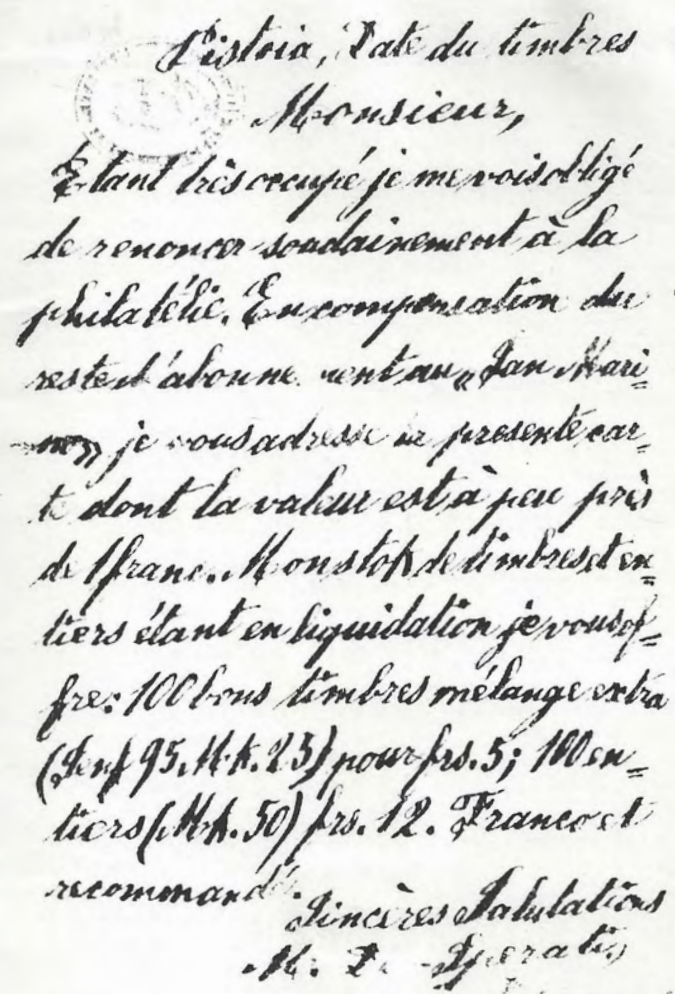 Pistoia, Date du timbres
Monsieur,
Etant très occupé je me vois obligé
de renoncer soudainement à la
philatélie. En compensation du
reste d'abonnement au „San Mari=
no„ je vous adresse la presente car-
te dont la valeur est à peu près
de 1 franc. Mon stok de timbres et en=
tiers étant en liquidation je vous of=
fre: 100 bons timbres mélange extra
(Senf 95. Mk. 25) pour frs. 5; 100 en=
tiers (Mk. 50) frs. 12. Franco et
recommandé.
Sincères Salutations
M. De Sperati